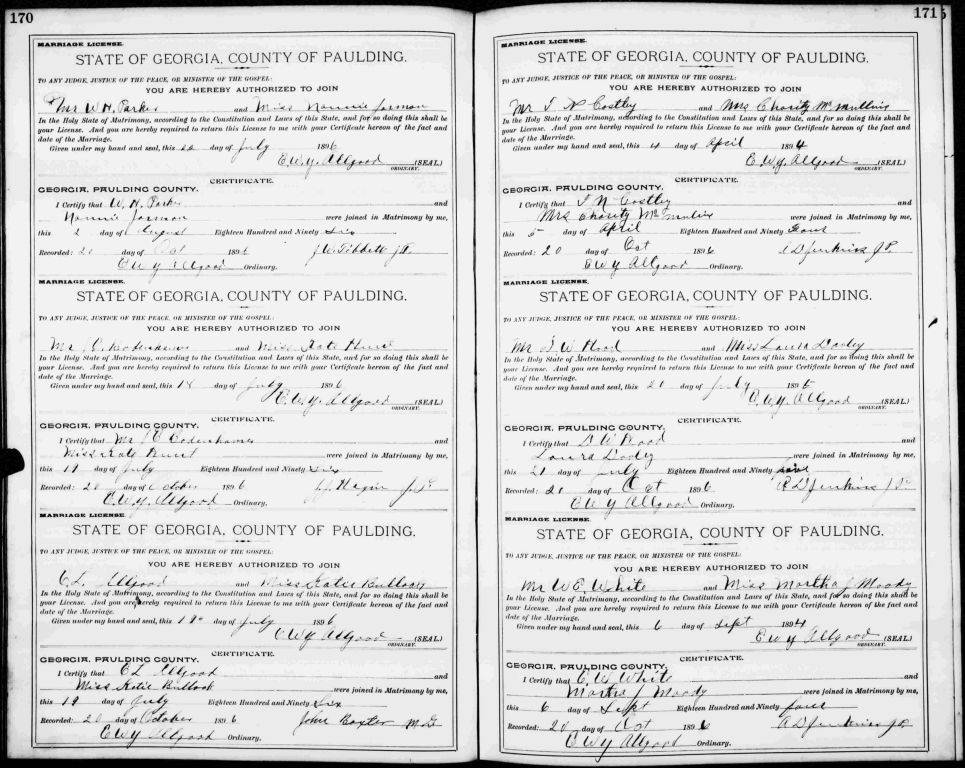 170
MARRIAGE LICENSE.
STATE OF GEORGIA, COUNTY OF PAULDING.
TO ANY JUDGE, JUSTICE OF THE PEACE, OR MINISTER OF THE GOSPEL:
YOU ARE HEREBY AUTHORIZED TO JOIN
Mr W H. Parker and Miss Nannie Jarman
In the Holy State of Matrimony, according to the Constitution and Laws of this State, and for so doing this shall be
your License. And you are hereby required to return this License to me with your Certificate hereon of the fact and
date of the Marriage.
Given under my hand and seal, this 22 day of July 1896
E.W.Y. Allgood (SEAL)
ORDINARY.
CERTIFICATE.
GEORGIA, PAULDING COUNTY.
I Certify that W. H. Parker and
Nannie Jarman were joined in Matrimony by me,
this 2 day of August Eighteen Hundred and Ninety six
Recorded: 20 day of Oct 1896 J.W. Tibbett J.P.
E W Y Allgood Ordinary.
MARRIAGE LICENSE.
STATE OF GEORGIA, COUNTY OF PAULDING.
TO ANY JUDGE, JUSTICE OF THE PEACE, OR MINISTER OF THE GOSPEL:
YOU ARE HEREBY AUTHORIZED TO JOIN
Mr and Miss Kate
In the Holy State of Matrimony, according to the Constitution and Laws of this State, and for so doing this shall be
your License. And you are hereby required to return this License to me with your Certificate hereon of the fact and
date of the Marriage.
Given under my hand and seal, this 18 day of July 1896
E.W.Y. Allgood (SEAL)
ORDINARY.
CERTIFICATE.
GEORGIA, PAULDING COUNTY.
I Certify that Mr and
Miss Kate were joined in Matrimony by me,
this 19 day of July Eighteen Hundred and Ninety six
Recorded: 20 day of October 1896
E.W.Y. Allgood Ordinary.
MARRIAGE LICENSE.
STATE OF GEORGIA, COUNTY OF PAULDING.
TO ANY JUDGE, JUSTICE OF THE PEACE, OR MINISTER OF THE GOSPEL:
YOU ARE HEREBY AUTHORIZED TO JOIN
C.L. Allgood and Miss Katie Bullock
In the Holy State of Matrimony, according to the Constitution and Laws of this State, and for so doing this shall be
your License. And you are hereby required to return this License to me with your Certificate hereon of the fact and
date of the Marriage.
Given under my hand and seal, this day of July 1896
E W Y Allgood (SEAL)
ORDINARY.
CERTIFICATE.
GEORGIA, PAULDING COUNTY.
I Certify that C L Allgood and
Miss Katie Bullock were joined in Matrimony by me,
this 19 day of July Eighteen Hundred and Ninety six
Recorded: 20 day of October 1896 John Baxter M.G
E W Y Allgood Ordinary.
171
MARRIAGE LICENSE.
STATE OF GEORGIA, COUNTY OF PAULDING.
TO ANY JUDGE, JUSTICE OF THE PEACE, OR MINISTER OF THE GOSPEL:
YOU ARE HEREBY AUTHORIZED TO JOIN
Mr T N Costley and Mrs Charity McMullin
In the Holy State of Matrimony, according to the Constitution and Laws of this State, and for so doing this shall be
your License. And you are hereby required to return this License to me with your Certificate hereon of the fact and
date of the Marriage.
Given under my hand and seal, this 4 day of April 1894
E.W.Y. Allgood (SEAL)
ORDINARY.
CERTIFICATE.
GEORGIA, PAULDING COUNTY.
I Certify that T N Costley and
Mrs Charity were joined in Matrimony by me,
this 5 day of April Eighteen Hundred and Ninety Four
Recorded: 20 day of Oct 1896 A D Jenkins J P.
E W Y Allgood Ordinary.
MARRIAGE LICENSE.
STATE OF GEORGIA, COUNTY OF PAULDING.
TO ANY JUDGE, JUSTICE OF THE PEACE, OR MINISTER OF THE GOSPEL:
YOU ARE HEREBY AUTHORIZED TO JOIN
Mr W Hood and Miss Laura Dooley
In the Holy State of Matrimony, according to the Constitution and Laws of this State, and for so doing this shall be
your License. And you are hereby required to return this License to me with your Certificate hereon of the fact and
date of the Marriage.
Given under my hand and seal, this 20 day of July 1895
E.W.Y. Allgood (SEAL)
ORDINARY.
CERTIFICATE.
GEORGIA, PAULDING COUNTY.
I Certify that W Hood and
Laura Dooley were joined in Matrimony by me,
this 21 day of July Eighteen Hundred and Ninety five
Recorded: 20 day of Oct 1896 A D Jenkins J P
E W Y Allgood Ordinary.
MARRIAGE LICENSE.
STATE OF GEORGIA, COUNTY OF PAULDING.
TO ANY JUDGE, JUSTICE OF THE PEACE, OR MINISTER OF THE GOSPEL:
YOU ARE HEREBY AUTHORIZED TO JOIN
Mr W E. White and Miss Martha J Moody
In the Holy State of Matrimony, according to the Constitution and Laws of this State, and for so doing this shall be
your License. And you are hereby required to return this License to me with your Certificate hereon of the fact and
date of the Marriage.
Given under my hand and seal, this 6 day of Sept 1894
E W Y Allgood (SEAL)
ORDINARY.
CERTIFICATE.
GEORGIA, PAULDING COUNTY.
I Certify that E. W. White and
Martha J Moody were joined in Matrimony by me,
this 6 day of Sept Eighteen Hundred and Ninety four
Recorded: 20 day of Oct 1896 A D Jenkins J P
E W Y Allgood Ordinary.